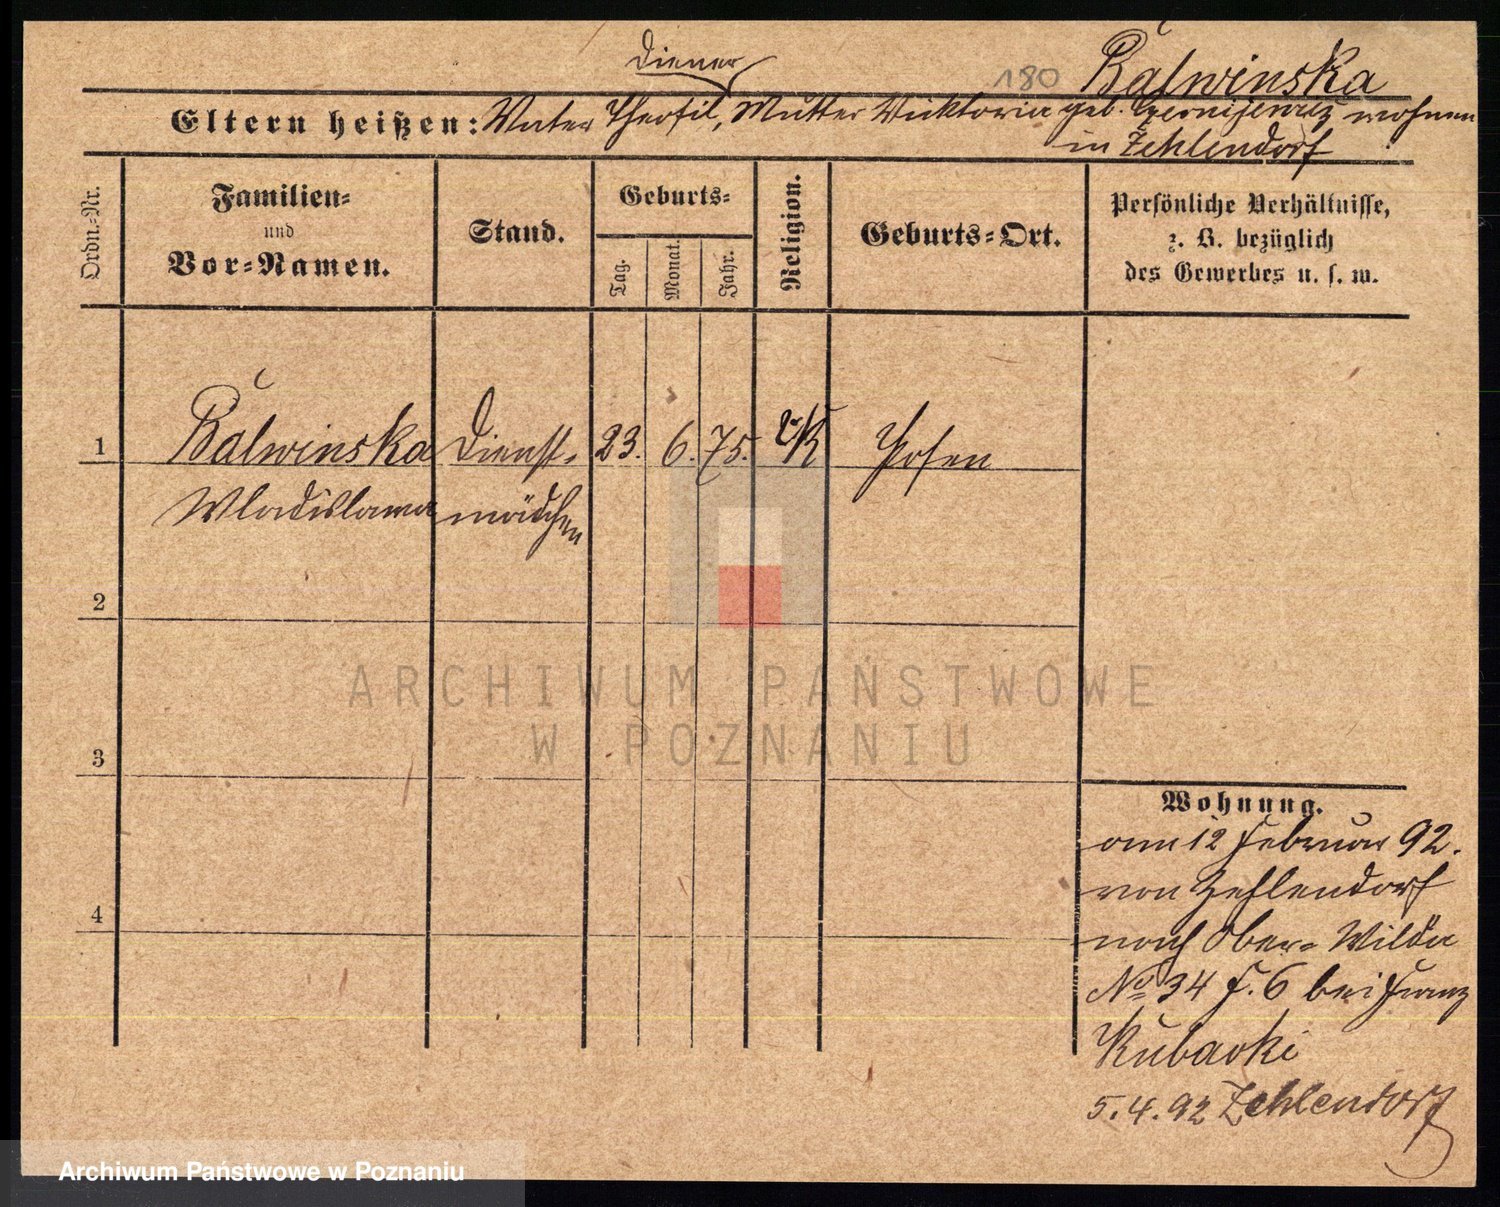 Diener
180 Balwinska
Eltern heißen: Vater Theofil, Mutter Viktoria geb. wohnen
in Zehlendorf
Ordn.-Nr.
Familien-
und
Vor-Namen.
Stand.
Geburts-
Tag.
Monat.
Jahr.
Religion.
Geburts-Ort.
Persönliche Verhältnisse,
z. B. bezüglich
des Gewerbes u. s. w.
1 Balwinska Dienst- 23. 6. 75. K Posen
Wladislawa mädchen
2
3
4
Wohnung.
am 12 Februar 92.
von Zehlendorf
nach Ober-Wilda
No 34 F. 6 bei Franz
Kubacki
5.4.92 Zehlendorf
ARCHIWUM PAŃSTWOWE
W POZNANIU
Archiwum Państwowe w Poznaniu